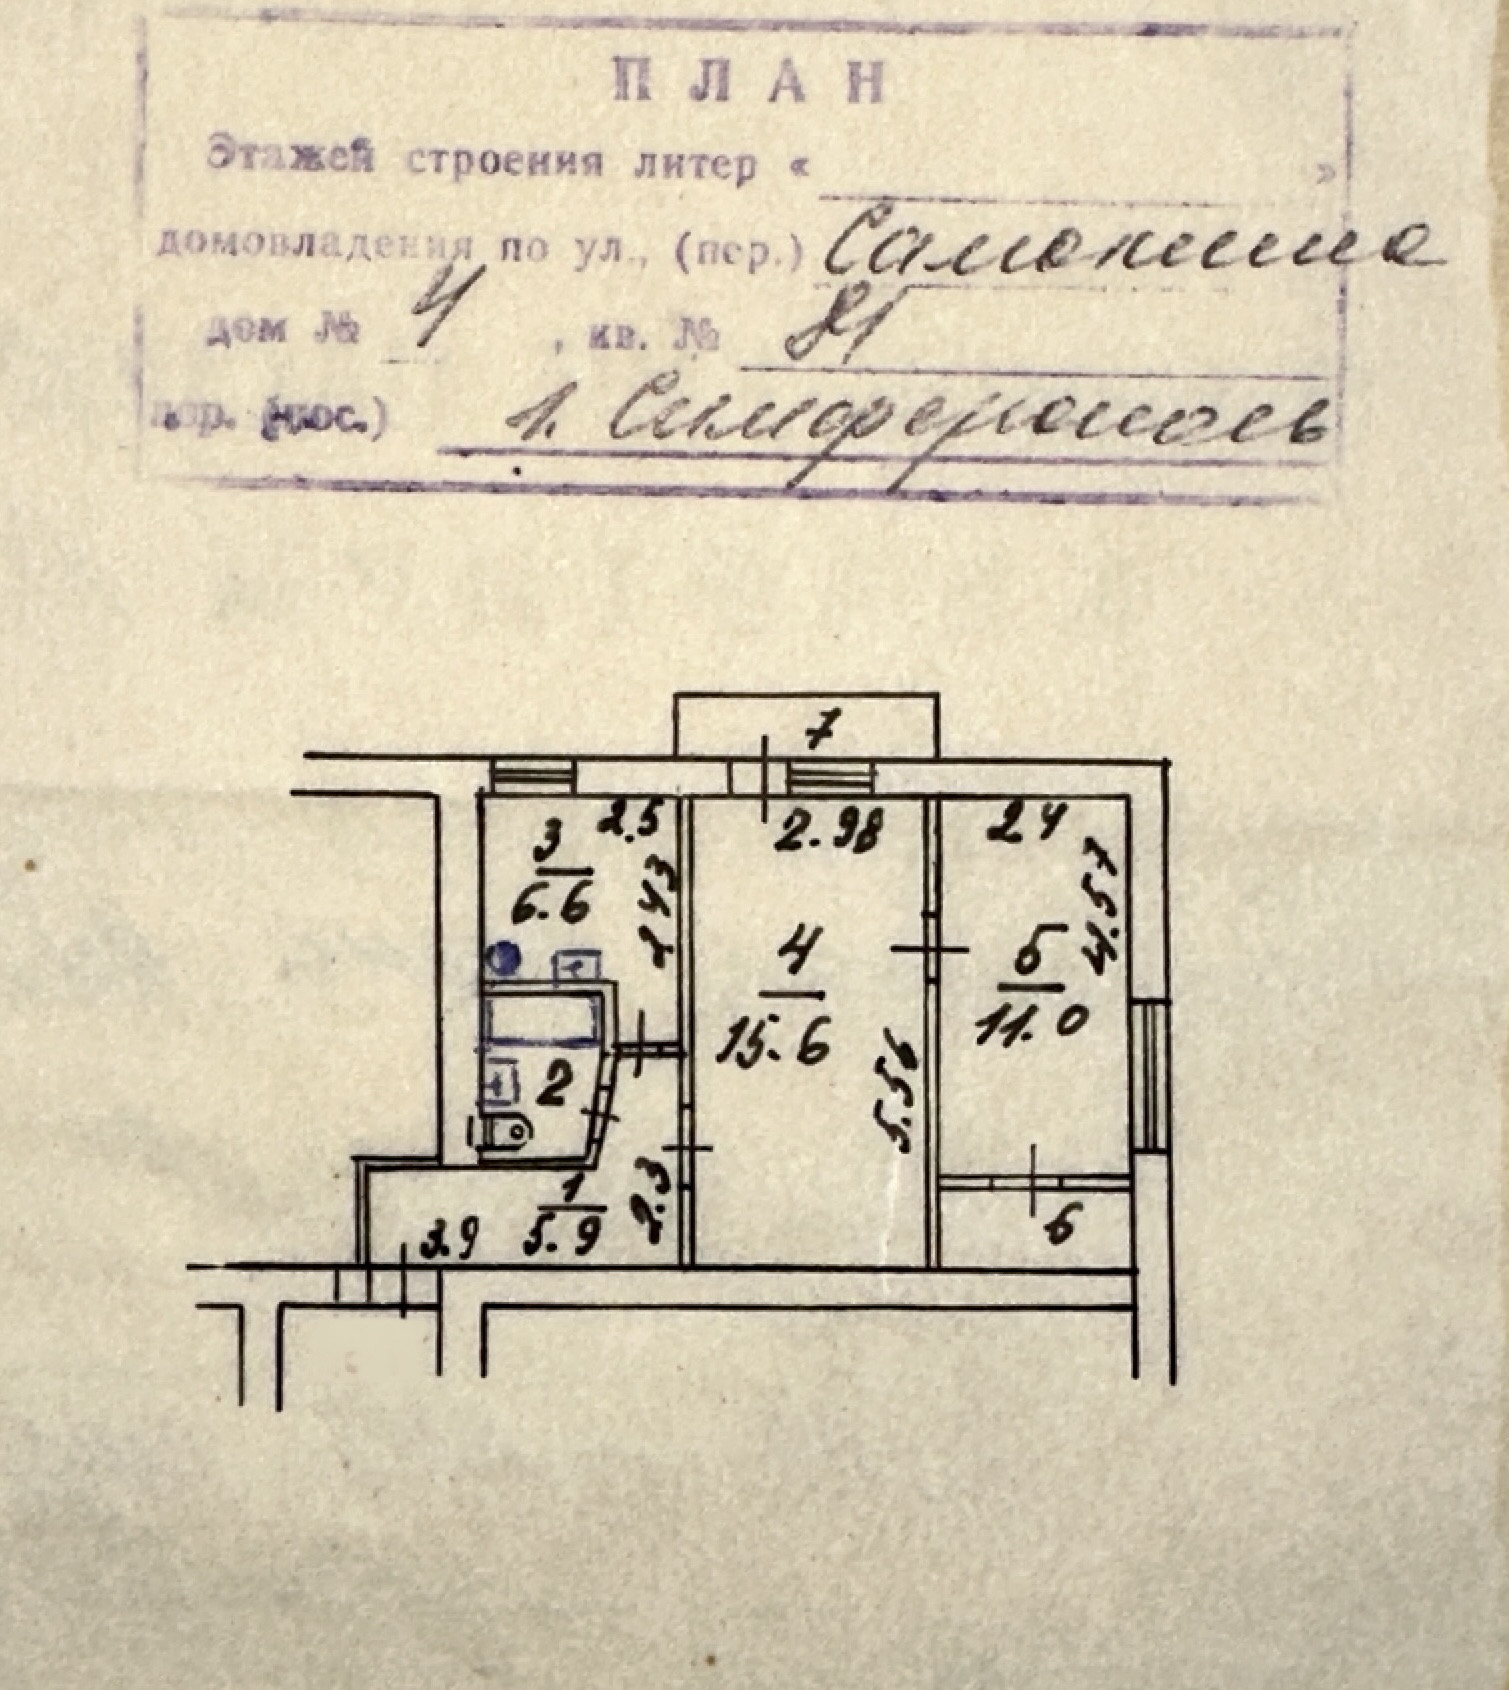 ПЛАН
Этажей строения литер « »
домовладения по ул., (пер.) Самокиша
дом № 4 , кв. № 21
гор. (пос.) г. Симферополь
7
2.5
2.98
2 4
3
6.6
2 43
4
15.6
5.56
5
11.0
4.57
2
1
5.9
3.9
2.3
6